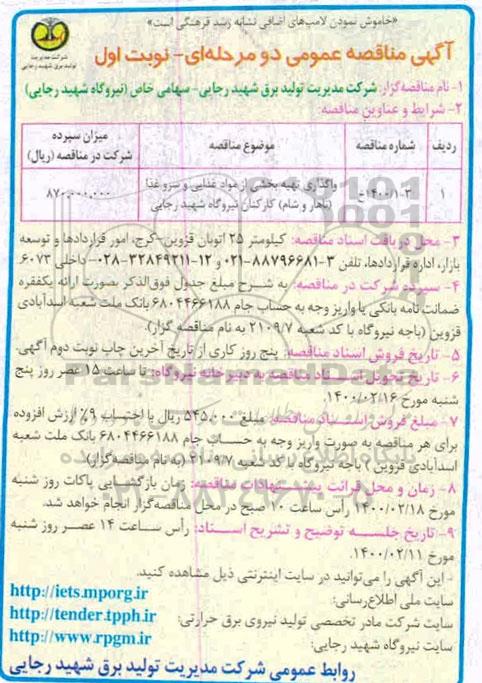 «خاموش نمودن لامپ‌های اضافی نشانه رشد فرهنگی است»
شرکت مدیریت
تولید برق شهید رجایی
آگهی مناقصه عمومی دو مرحله‌ای- نوبت اول
۱- نام مناقصه‌گزار: شرکت مدیریت تولید برق شهید رجایی- سهامی خاص (نیروگاه شهید رجایی)
۲- شرایط و عناوین مناقصه:
ردیف شماره مناقصه موضوع مناقصه میزان سپرده
شرکت در مناقصه (ریال)
۱ ۱۴۰۰/۱-۳خ واگذاری تهیه بخشی از مواد غذایی و سرو غذا
(ناهار و شام) کارکنان نیروگاه شهید رجایی ۸۷۰,۰۰۰,۰۰۰
۳- محل دریافت اسناد مناقصه: کیلومتر ۲۵ اتوبان قزوین-کرج، امور قراردادها و توسعه
بازار، اداره قراردادها، تلفن ۳-۸۸۷۹۶۶۸۱-۰۲۱ و ۱۲-۳۲۸۴۹۲۱۱-۰۲۸ داخلی ۶۰۷۳.
۴- سپرده شرکت در مناقصه: به شرح مبلغ جدول فوق‌الذکر بصورت ارائه یکفقره
ضمانت نامه بانکی یا واریز وجه به حساب جام ۶۸۰۴۴۶۶۱۸۸ بانک ملت شعبه اسدآبادی
قزوین (باجه نیروگاه با کد شعبه ۲۱۰۹/۷ به نام مناقصه گزار).
۵- تاریخ فروش اسناد مناقصه: پنج روز کاری از تاریخ آخرین چاپ نوبت دوم آگهی.
۶- تاریخ تحویل اسناد مناقصه به دبیرخانه نیروگاه: تا ساعت ۱۵ عصر روز پنج
شنبه مورخ ۱۴۰۰/۰۲/۱۶.
۷- مبلغ فروش اسناد مناقصه: مبلغ ۵۴۵,۰۰۰ ریال با احتساب ۹٪ ارزش افزوده
برای هر مناقصه به صورت واریز وجه به حساب جام ۶۸۰۴۴۶۶۱۸۸ بانک ملت شعبه
اسدآبادی قزوین ) باجه نیروگاه با کد شعبه ۲۱۰۹/۷ (به نام مناقصه‌گزار)
۸- زمان و محل قرائت پیشنهادات مناقصه: زمان بازگشایی پاکات روز شنبه
مورخ ۱۴۰۰/۰۲/۱۸ رأس ساعت ۱۰ صبح در محل مناقصه‌گزار انجام خواهد شد.
۹- تاریخ جلسه توضیح و تشریح اسناد: رأس ساعت ۱۴ عصر روز شنبه
مورخ ۱۴۰۰/۰۲/۱۱.
- این آگهی را می‌توانید در سایت اینترنتی ذیل مشاهده کنید.
سایت ملی اطلاع‌رسانی: http://iets.mporg.ir
سایت شرکت مادر تخصصی تولید نیروی برق حرارتی: http://tender.tpph.ir
سایت نیروگاه شهید رجایی: http://www.rpgm.ir
روابط عمومی شرکت مدیریت تولید برق شهید رجایی
ParsNamadData
۰۲۱-۸۸۳۴۹۶۷۰-۵